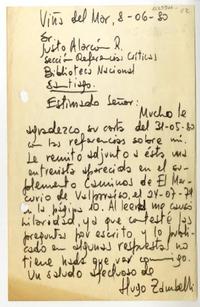 Viña del Mar, 8-06-80
Sr.
Justo Alarcón R.
Sección Referencias Críticas
Biblioteca Nacional
Santiago.
Estimado Señor:
Mucho le
agradezco, su carta del 31-05-80
con las referencias sobre mí.
Le remito adjunto a ésta una
entrevista aparecida en el su-
plemento Caminos de El Mer-
curio de Valparaíso, el 24-07-79
en la página 20. Al leerla me causó
hilaridad, ya que contesté las
preguntas por escrito y lo publi-
cado en algunas respuestas no
tiene nada que ver conmigo.
Un saludo afectuoso de
Hugo Zambelli